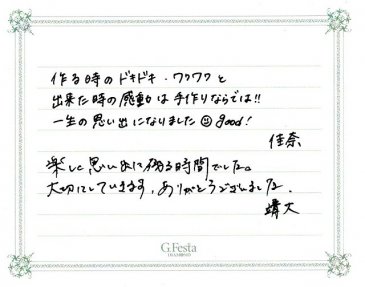 作る時のドキドキ・ワクワクと
出来た時の感動は手作りならでは!!
一生の思い出になりました☺good!
佳奈
楽しく思い出に残る時間でした。
大切にしていきます。ありがとうございました。
靖大
G.Festa
DIAMOND